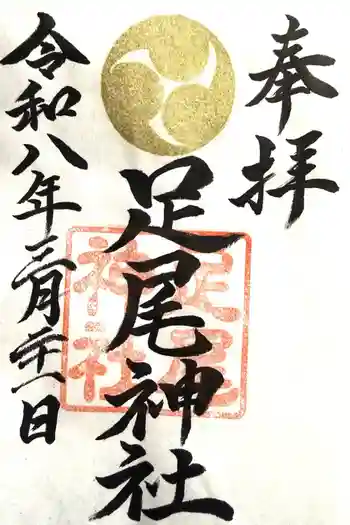 奉拝
足尾神社
足尾
神社
令和八年三月廿一日